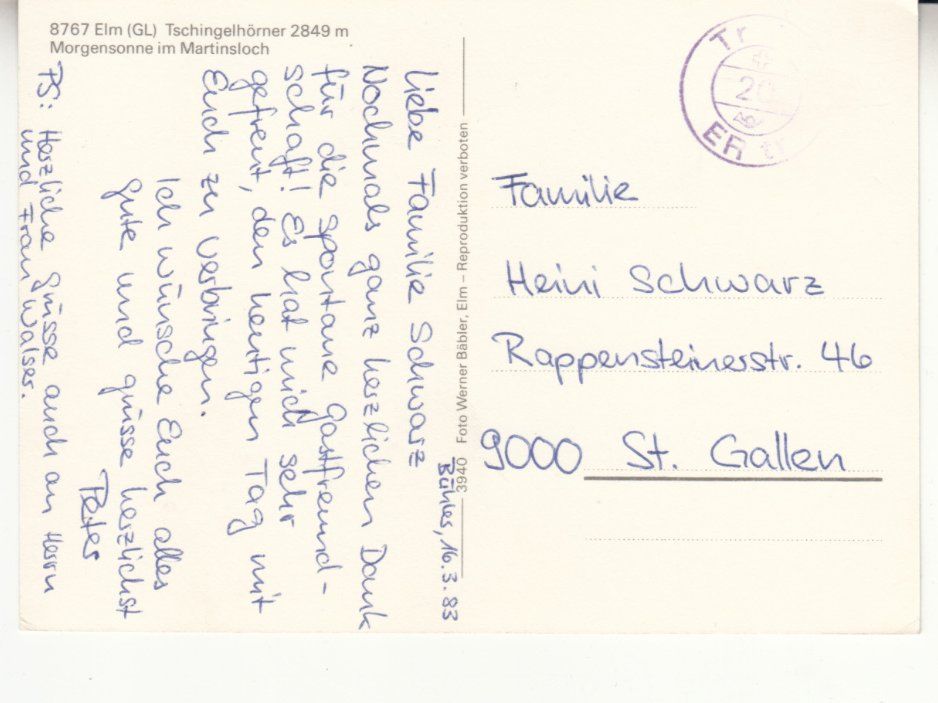 8767 Elm (GL) Tschingelhörner 2849 m
Morgensonne im Martinsloch
Bühler, 16.3.83
Liebe Familie Schwarz
Nochmals ganz herzlichen Dank
für die spontane Gastfreund-
schaft! Es hat mich sehr
gefreut, den heutigen Tag mit
Euch zu verbringen.
Ich wünsche Euch alles
gute und grüsse herzlichst
Peter
PS: Herzliche Grüsse auch an Herrn
und Frau Walser.
3940 Foto Werner Bäbler, Elm – Reproduktion verboten
Tr
20
ER tr
Familie
Heini Schwarz
Rappensteinerstr. 46
9000 St. Gallen